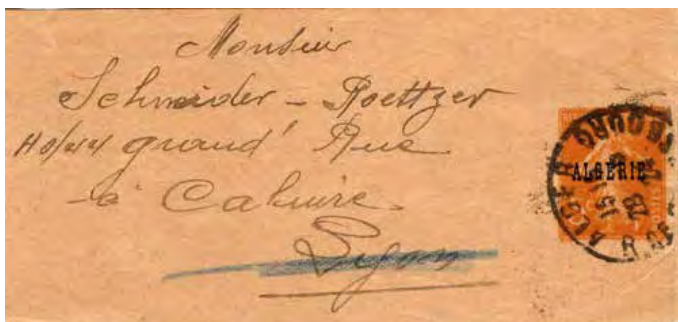 Monsieur
Schneider - Roettzer
grand' Rue
à Caluire
Lyon
ALGERIE
ALGER